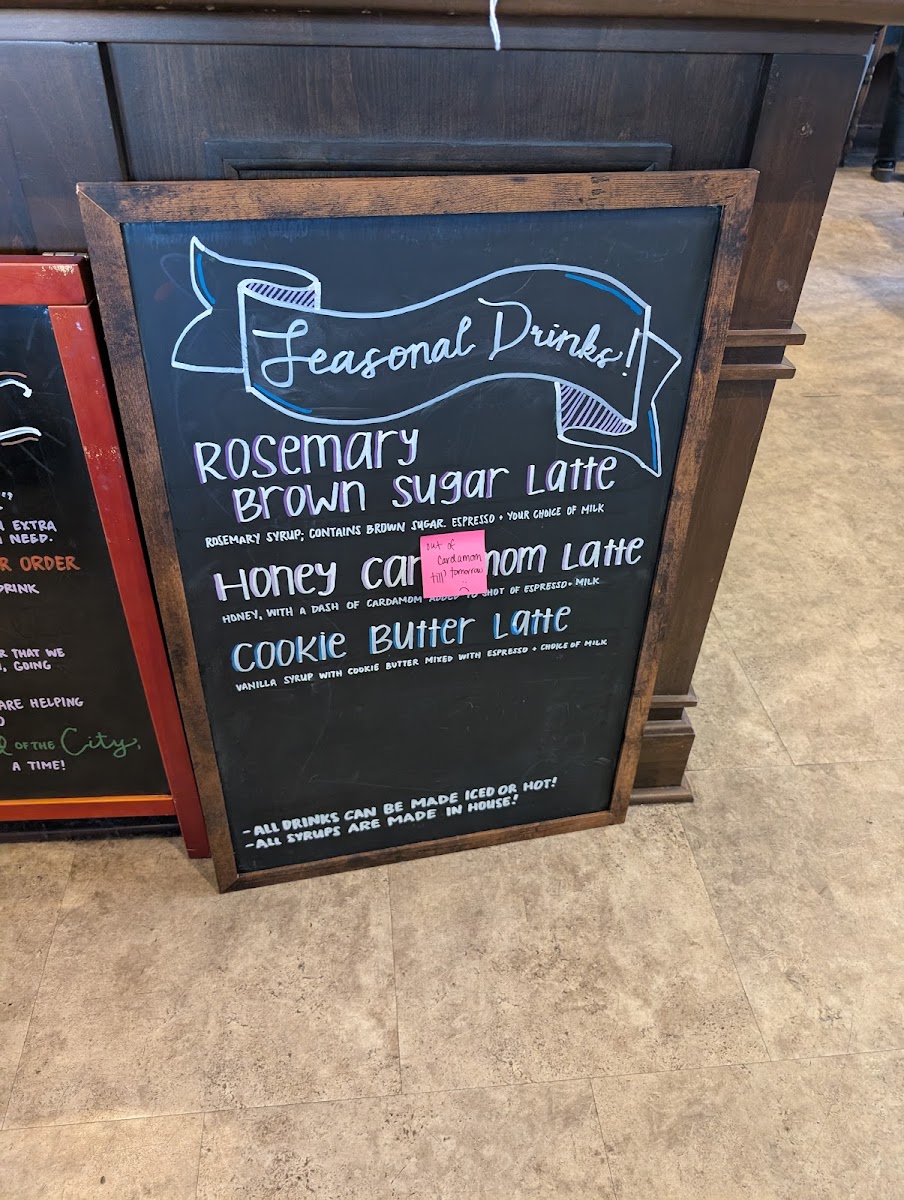 Seasonal Drinks!
Rosemary
Brown Sugar Latte
ROSEMARY SYRUP; CONTAINS BROWN SUGAR. ESPRESSO + YOUR CHOICE OF MILK
Honey Car mom Latte
out of
cardamom
till' tomorrow
:(
HONEY, WITH A DASH OF CARDAMOM ADDED TO SHOT OF ESPRESSO + MILK
Cookie Butter Latte
VANILLA SYRUP WITH COOKIE BUTTER MIXED WITH ESPRESSO + CHOICE OF MILK
-ALL DRINKS CAN BE MADE ICED OR HOT!
-ALL SYRUPS ARE MADE IN HOUSE!
EXTRA
NEED.
ORDER
DRINK
THAT WE
GOING
ARE HELPING
OF THE City,
A TIME!